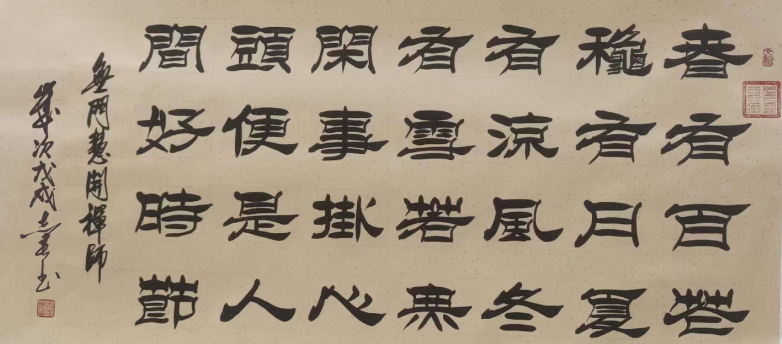 春有百花
穐有月夏
有涼風冬
有雪若無
閑事掛心
頭便是人
間好時節
無門慧開禪師
歲次戊戌志书